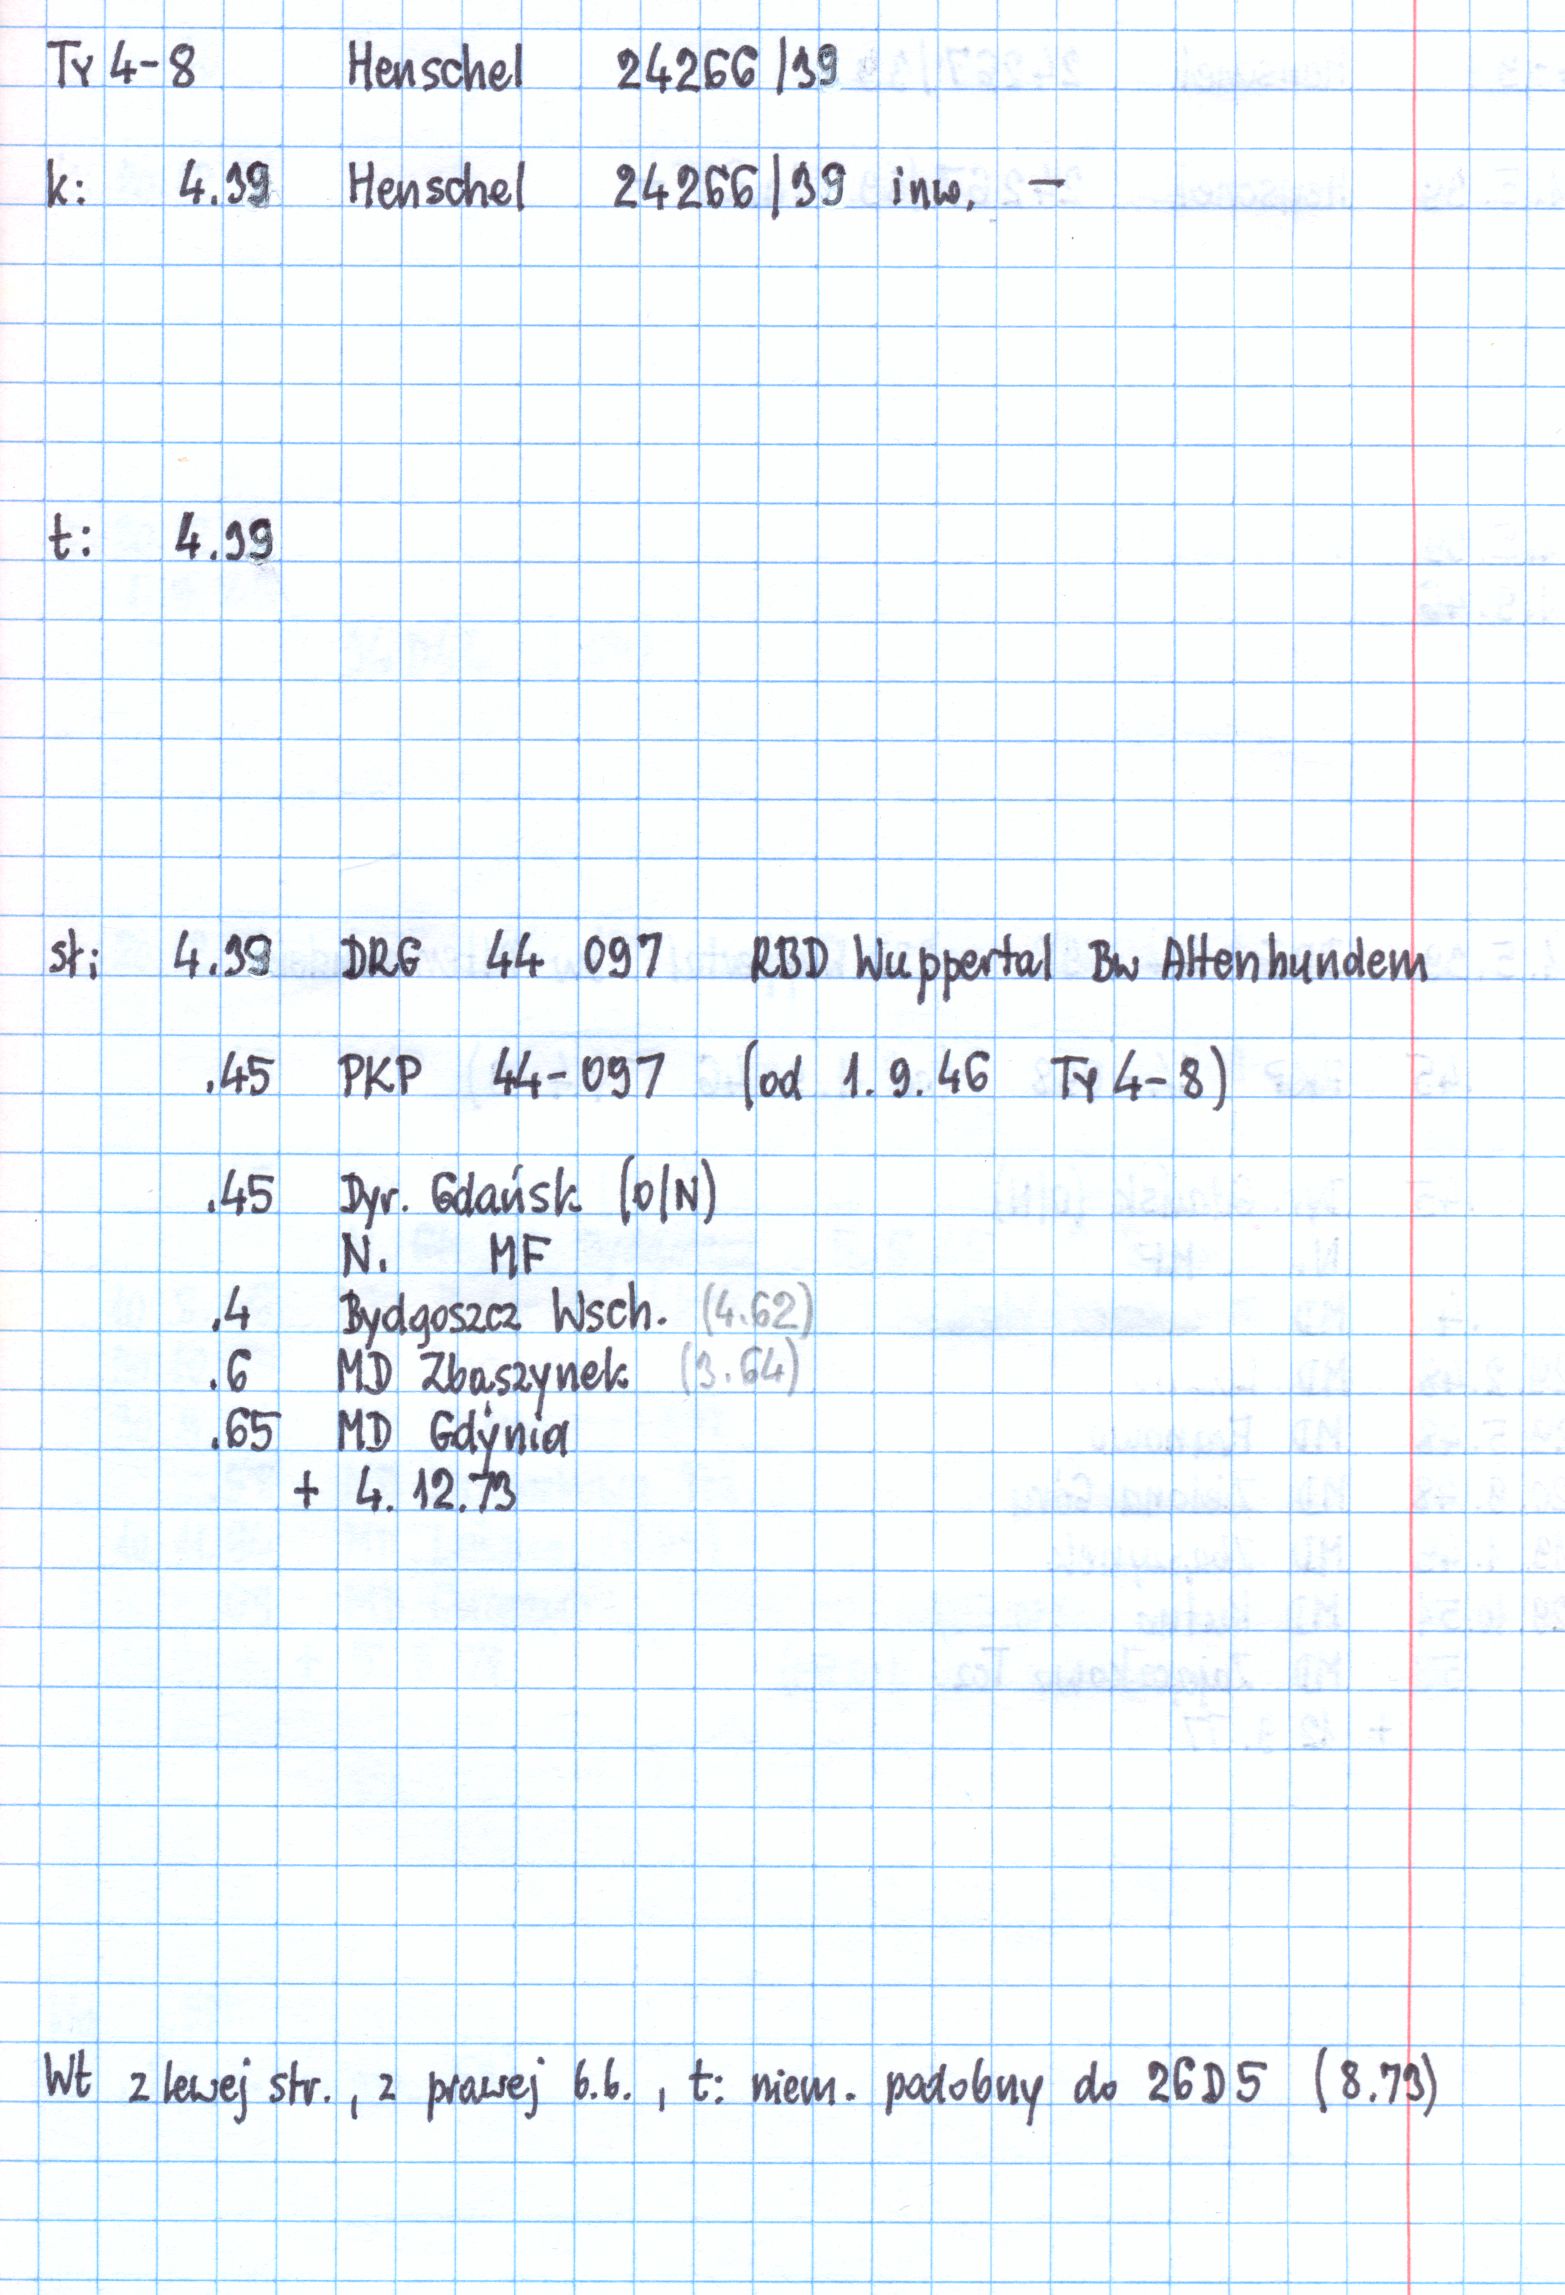 Ty 4-8 Henschel 24266/39
k: 4.39 Henschel 24266/39 inw. —
t: 4.39
st: 4.39 DRG 44 097 RBD Wuppertal Bw Altenhundem
.45 PKP 44-097 (od 1.9.46 Ty 4-8)
.45 Dyr. Gdańsk (O/N)
N. MF
.4 Bydgoszcz Wsch. (4.62)
.6 MD Zbąszynek (3.64)
.65 MD Gdynia
+ 4.12.73
Wt z lewej str., z prawej b.b., t: niem. podobny do 26D5 (8.73)